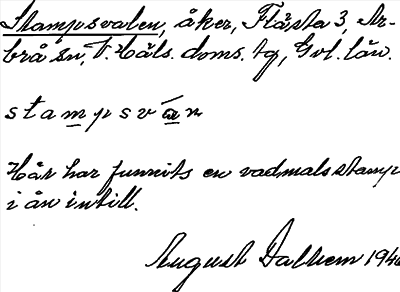 Stampsvalen, åker, Flåsta 3, Ar-
brå sn, V. Häls. doms. tg, Gvl. län.
stampsvan
Här har funnits en vadmalsstamp
i ån intill.
August Dalhem 194